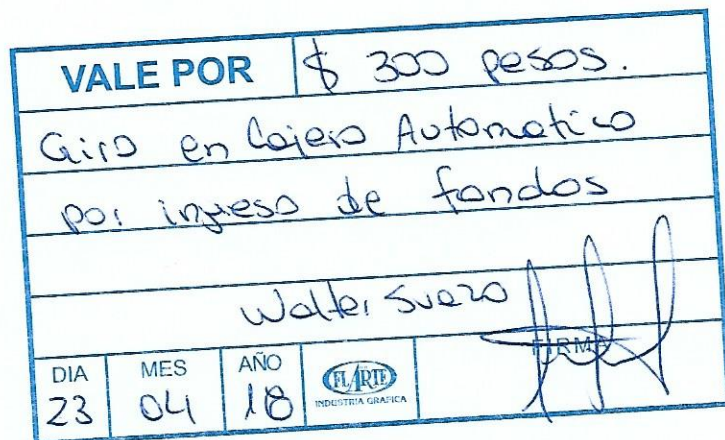 VALE POR $ 300 pesos.
Giro en Cajero Automatico
por ingreso de fondos
Walter Suazo
FIRMA
DIA MES AÑO
23 04 18
FLARTE
INDUSTRIA GRAFICA